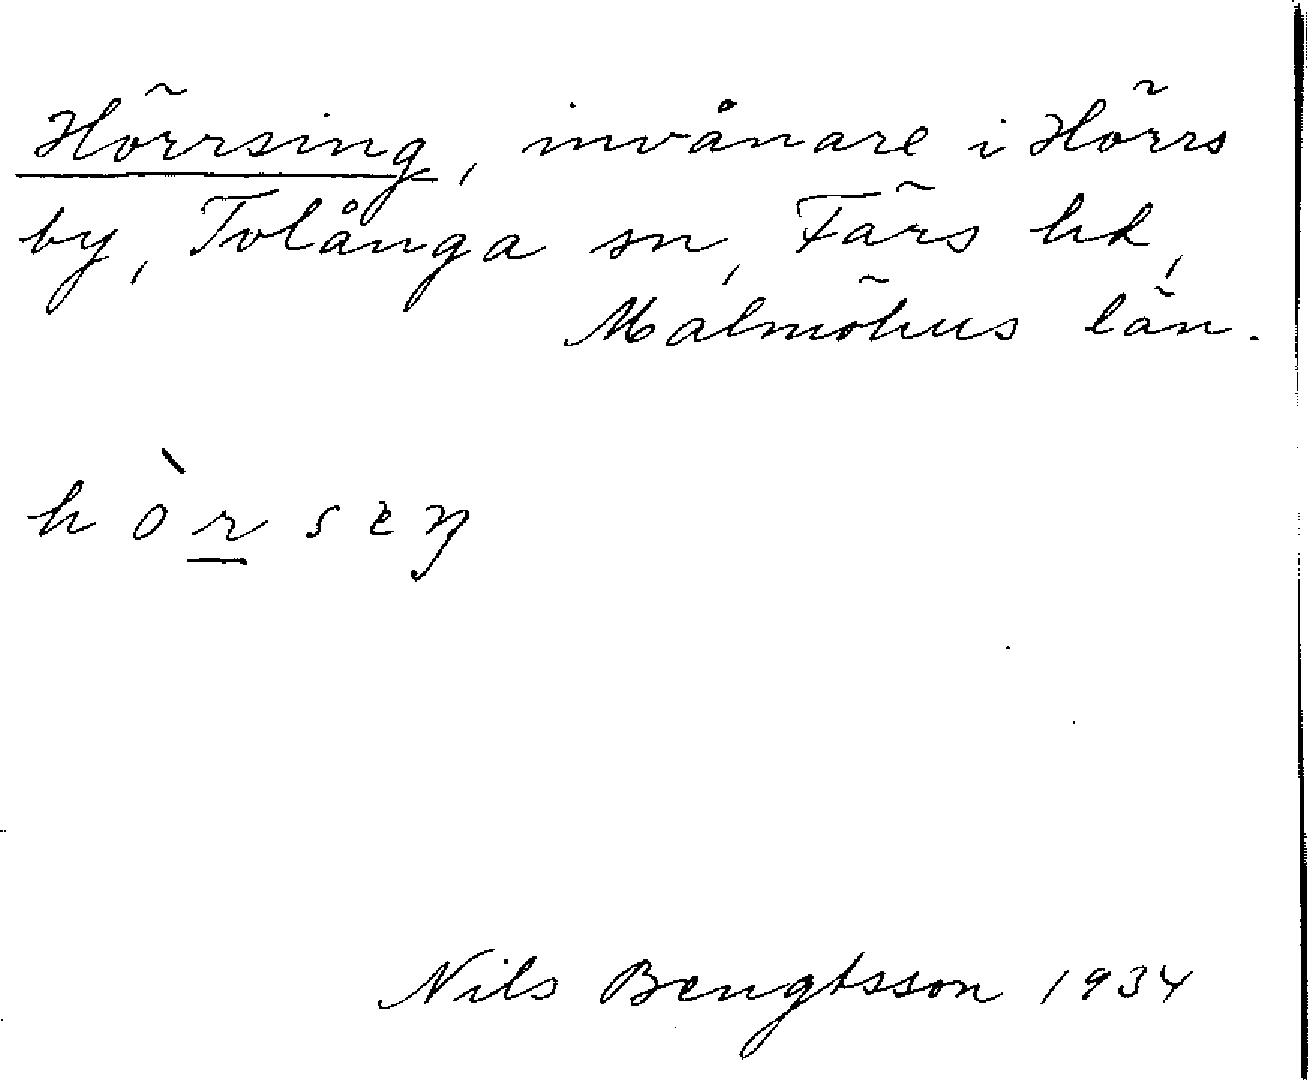 Hörrsing, invånare i Hörrs
by, Tolånga sn, Färs hd,
Malmöhus län.
hòrseŋ
Nils Bengtsson 1934